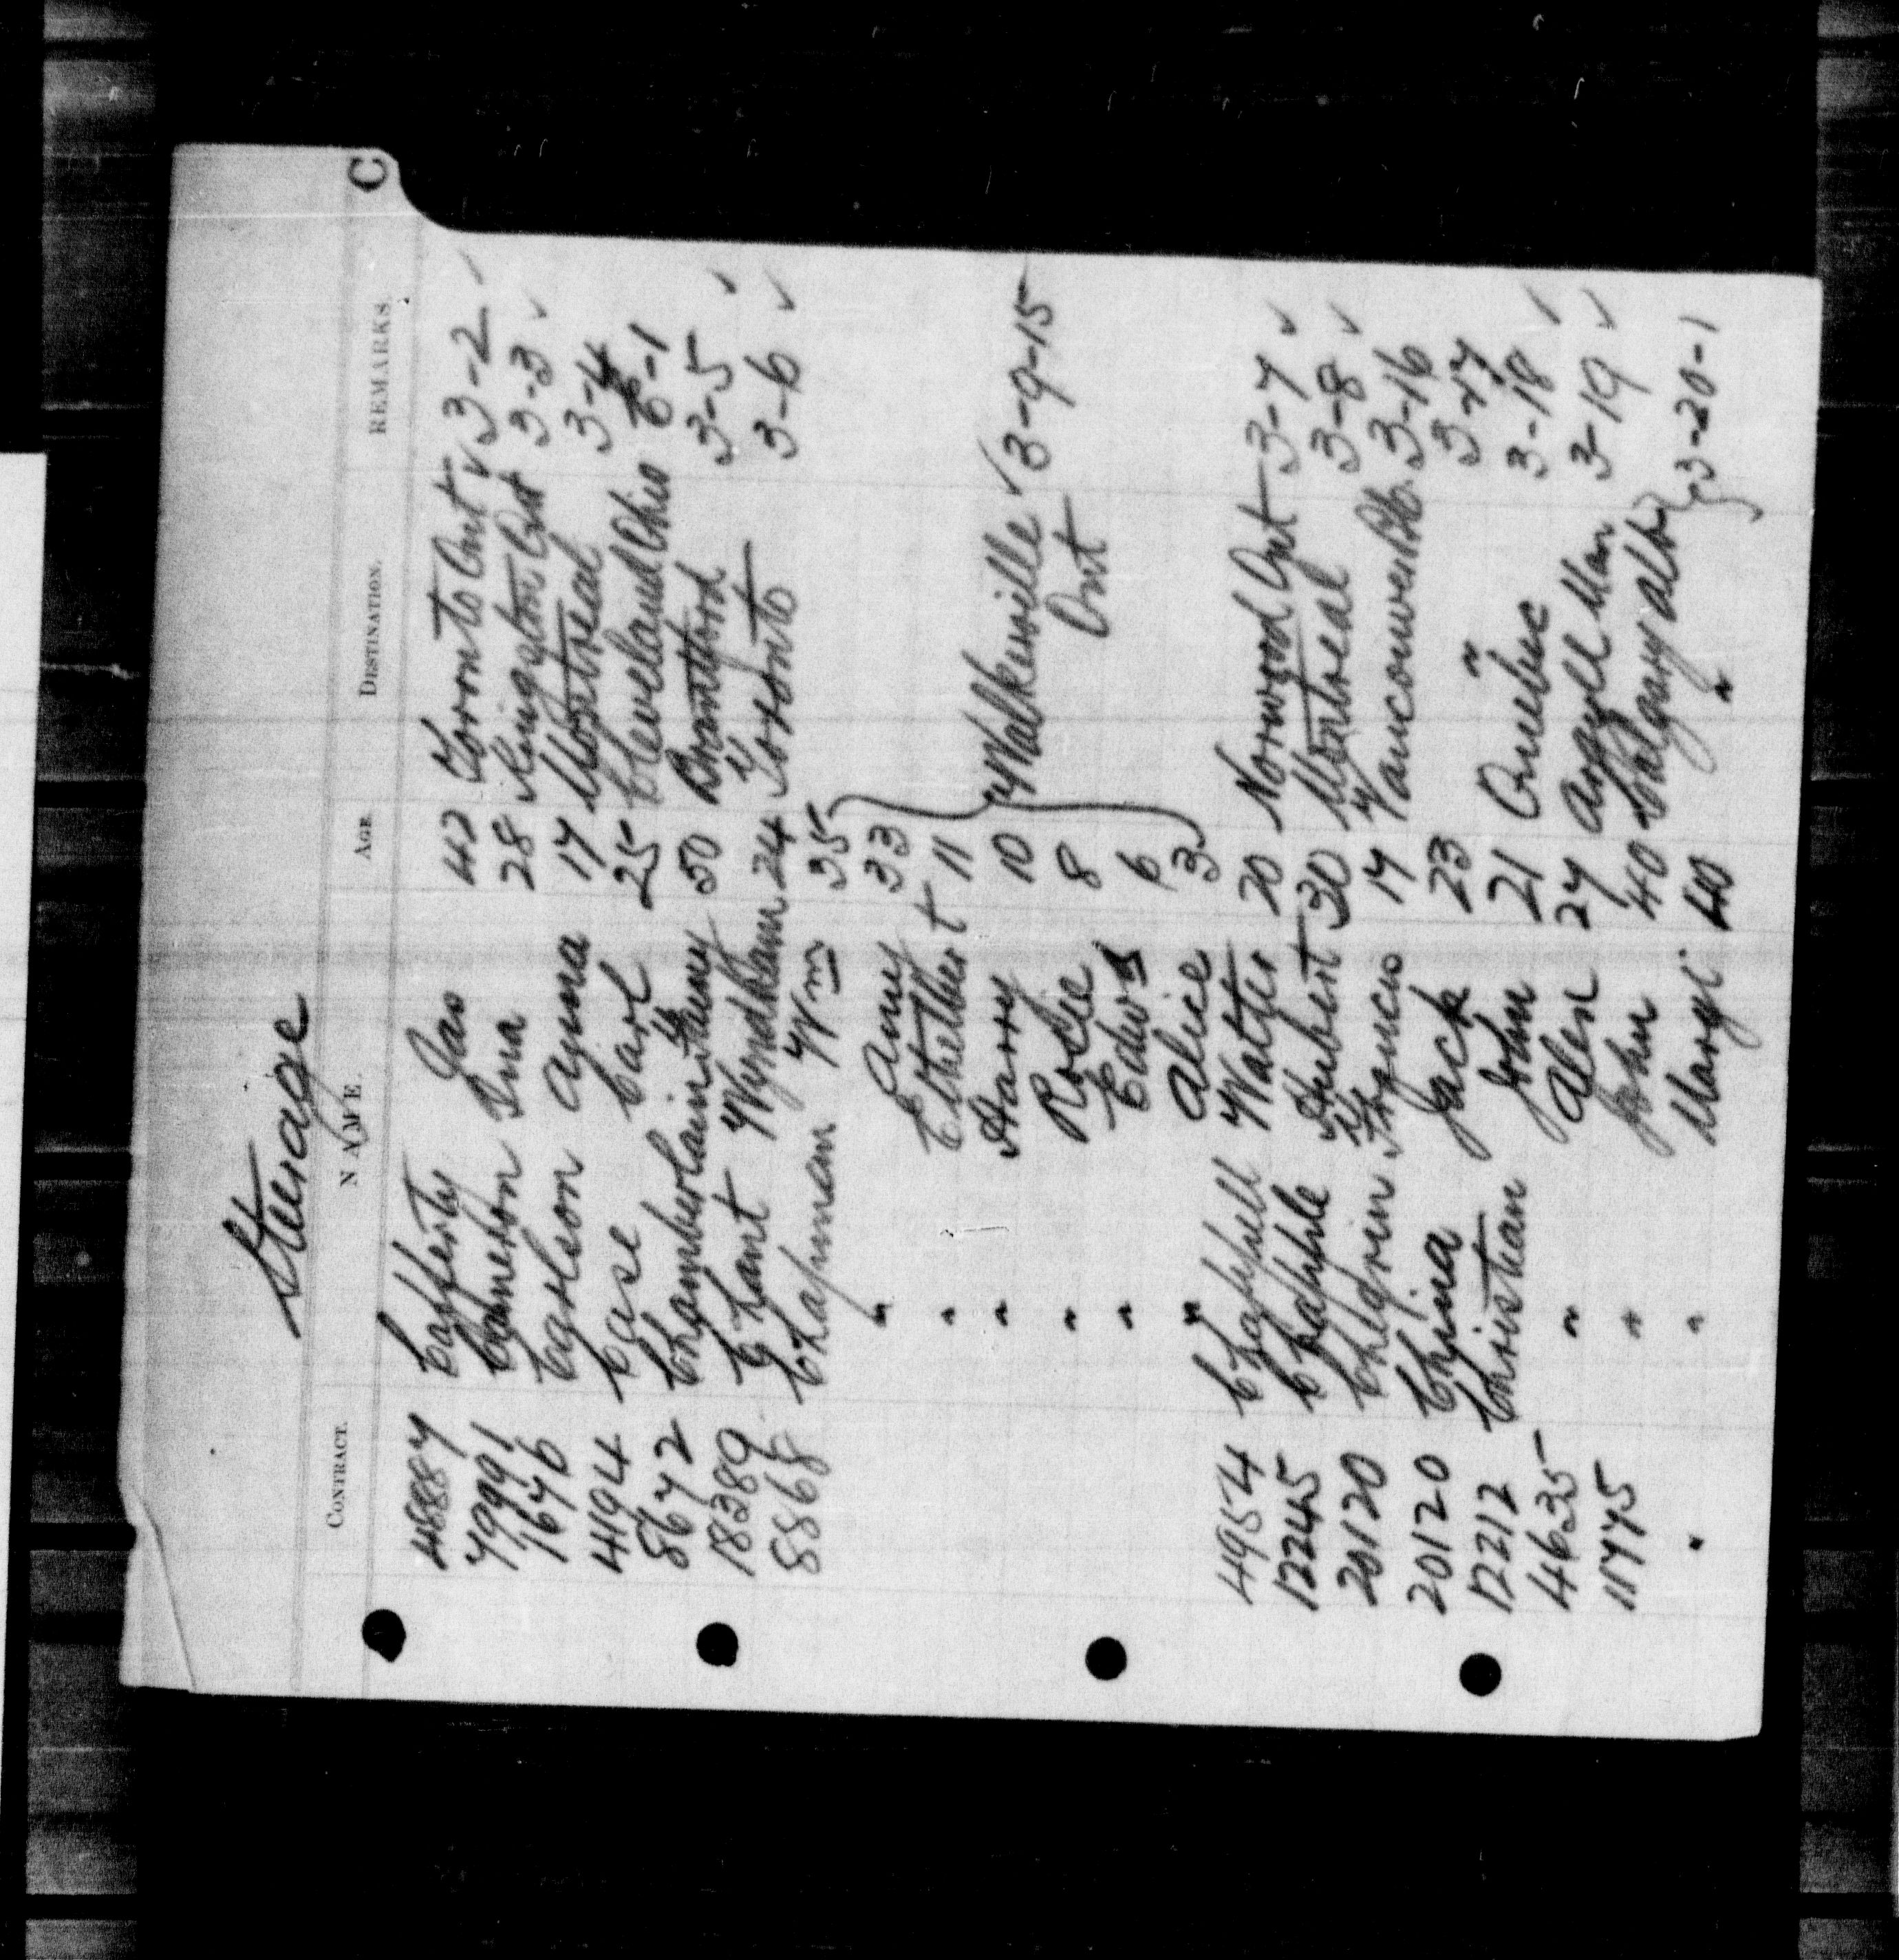 Steerage
C
CONTRACT. NAME. AGE DESTINATION. REMARKS
48887 Cafferty Jas 42 Toronto Ont ✓ 3-2 ✓
79991 Cameron Ina 28 Kingston Ont 3-3 ✓
1676 Carlson Agma 17 Montreal 3-4
4194 Case Carl 25 Cleveland Ohio E-1
8672 Chamberlain Henry 50 Brantford 3-5 ✓
18389 Chant Wyndham 24 Toronto 3-6 ✓
8868 Chapman Wm 35
" Amy 33
" Ethelbert 11
" Harry 10 Walkerville ✓ 3-9-15
" Rosie 8 Ont
" Edwd 6
" Alice 3
4954 Chappell Walter 20 Norwood Ont 3-7 ✓
12245 Chapple Hubert 30 Montreal 3-8 ✓
20120 Francis 17 Vancouver BC. 3-16
20120 China Jack 23 " 3-17
12212 Christian John 21 Quebec 3-18 ✓
4635 " Alex 27 Argyll Man 3-19 ✓
11775 " John 40 Calgary Alb 3-20-1
" " Margt 40 "